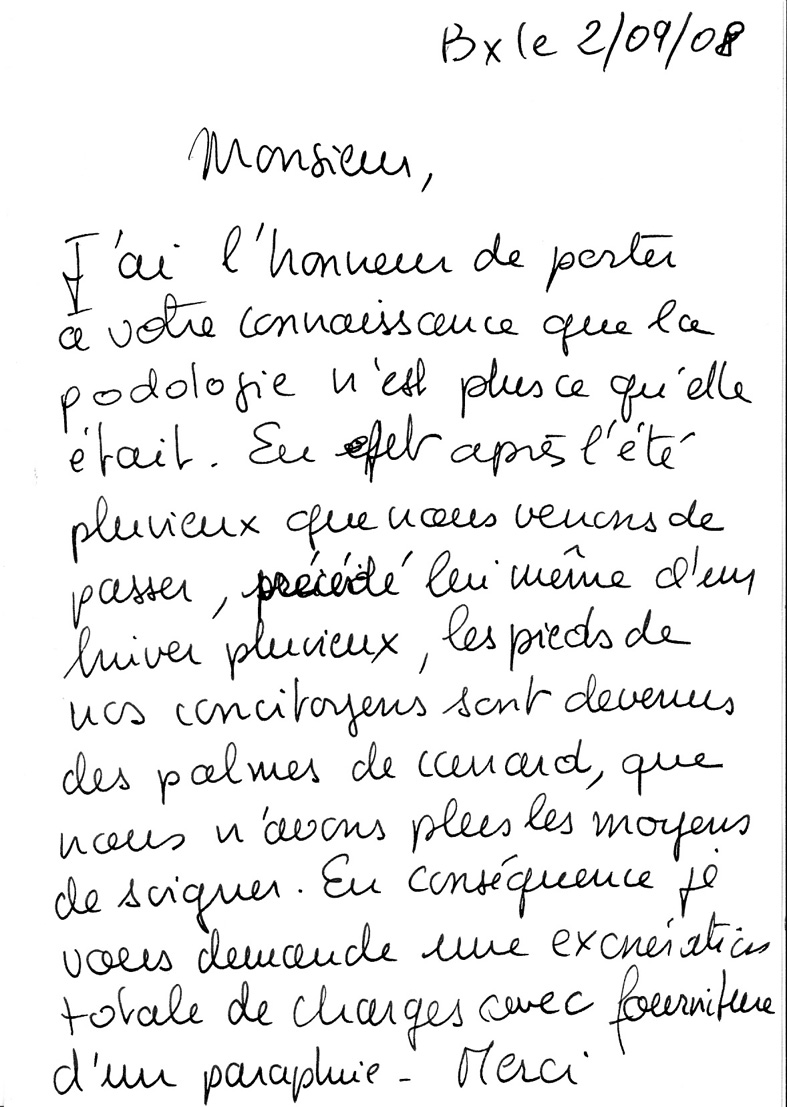 Bx le 2/09/08
Monsieur,
J'ai l'honneur de porter
à votre connaissance que la
podologie n'est plus ce qu'elle
était. En effet après l'été
pluvieux que nous venons de
passer, précédé lui même d'un
hiver pluvieux, les pieds de
nos concitoyens sont devenus
des palmes de canard, que
nous n'avons plus les moyens
de soigner. En conséquence je
vous demande une exonération
totale de charges avec fourniture
d'un parapluie - Merci